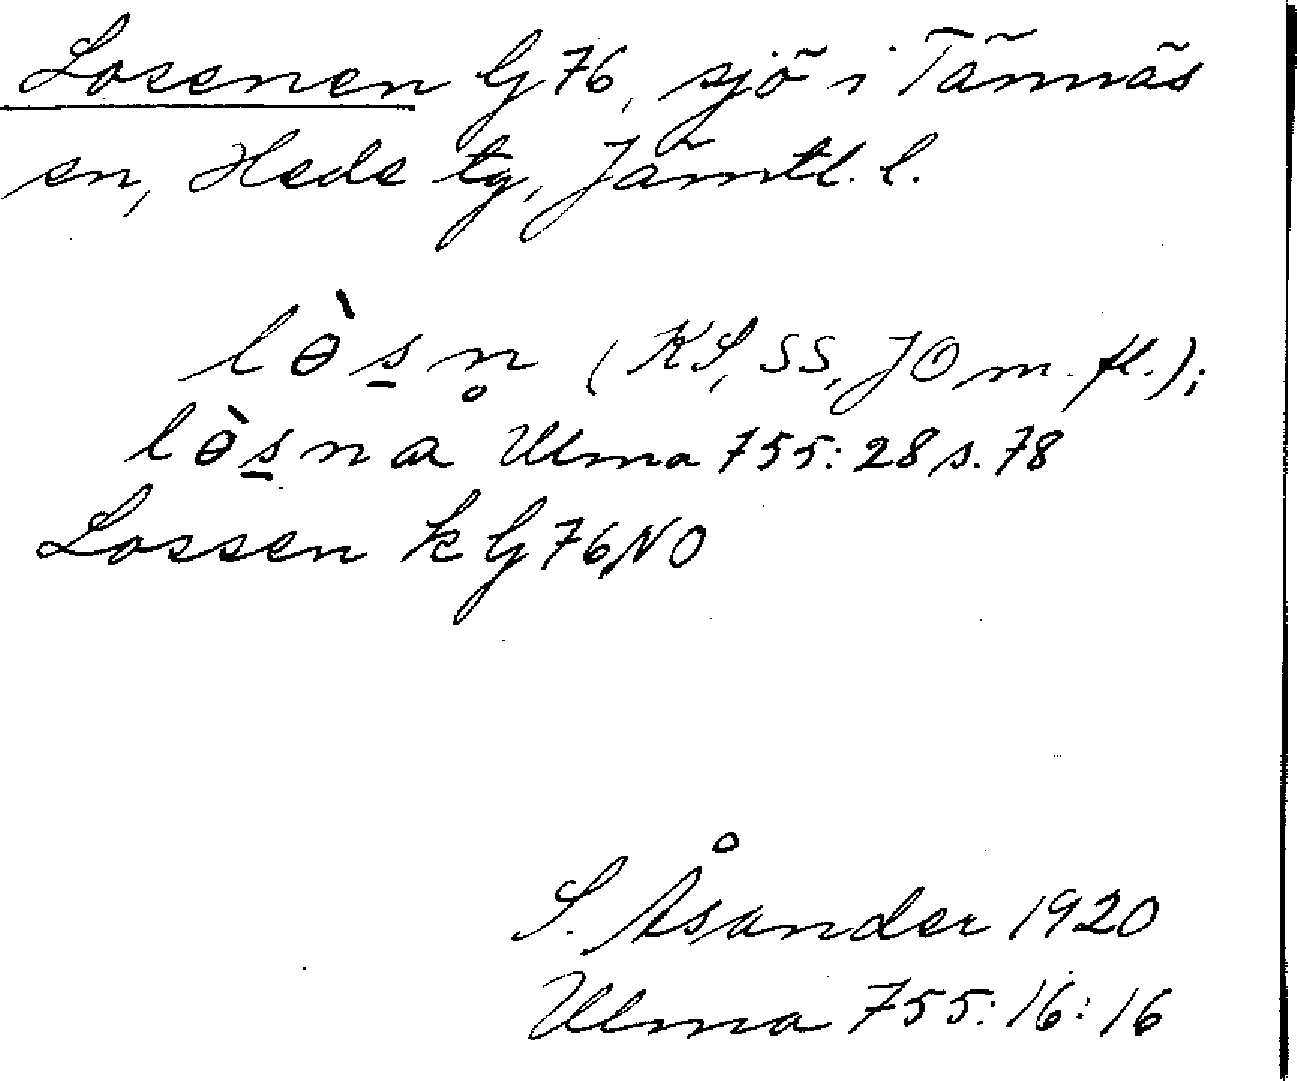 Losenen G 76, sjö i Tännäs
sn, Hede tg, Jämtl. l.
lɵ̀s̲n̥ (KS, SS, JO m. fl.);
lɵ̀s̲na Ulma 755:28 s. 78
Lossen k G 76 NO
S. Åsander 1920
Ulma 755:16:16